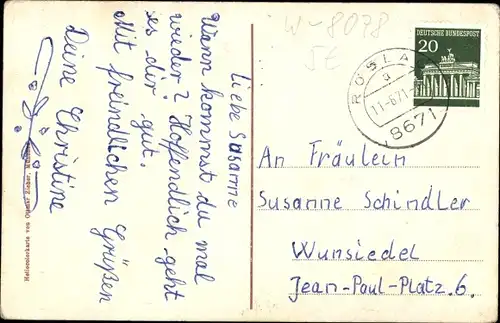 Liebe Susanne
Wann kommst du mal
wieder? Hoffendlich geht
es dir gut.
Mit freindlichen Grüßen
Deine Christine
W-8078
DEUTSCHE BUNDESPOST
20
RÖSLA
a
11-6.71
8671
An Fräulein
Susanne Schindler
Wunsiedel
Jean-Paul-Platz.6.